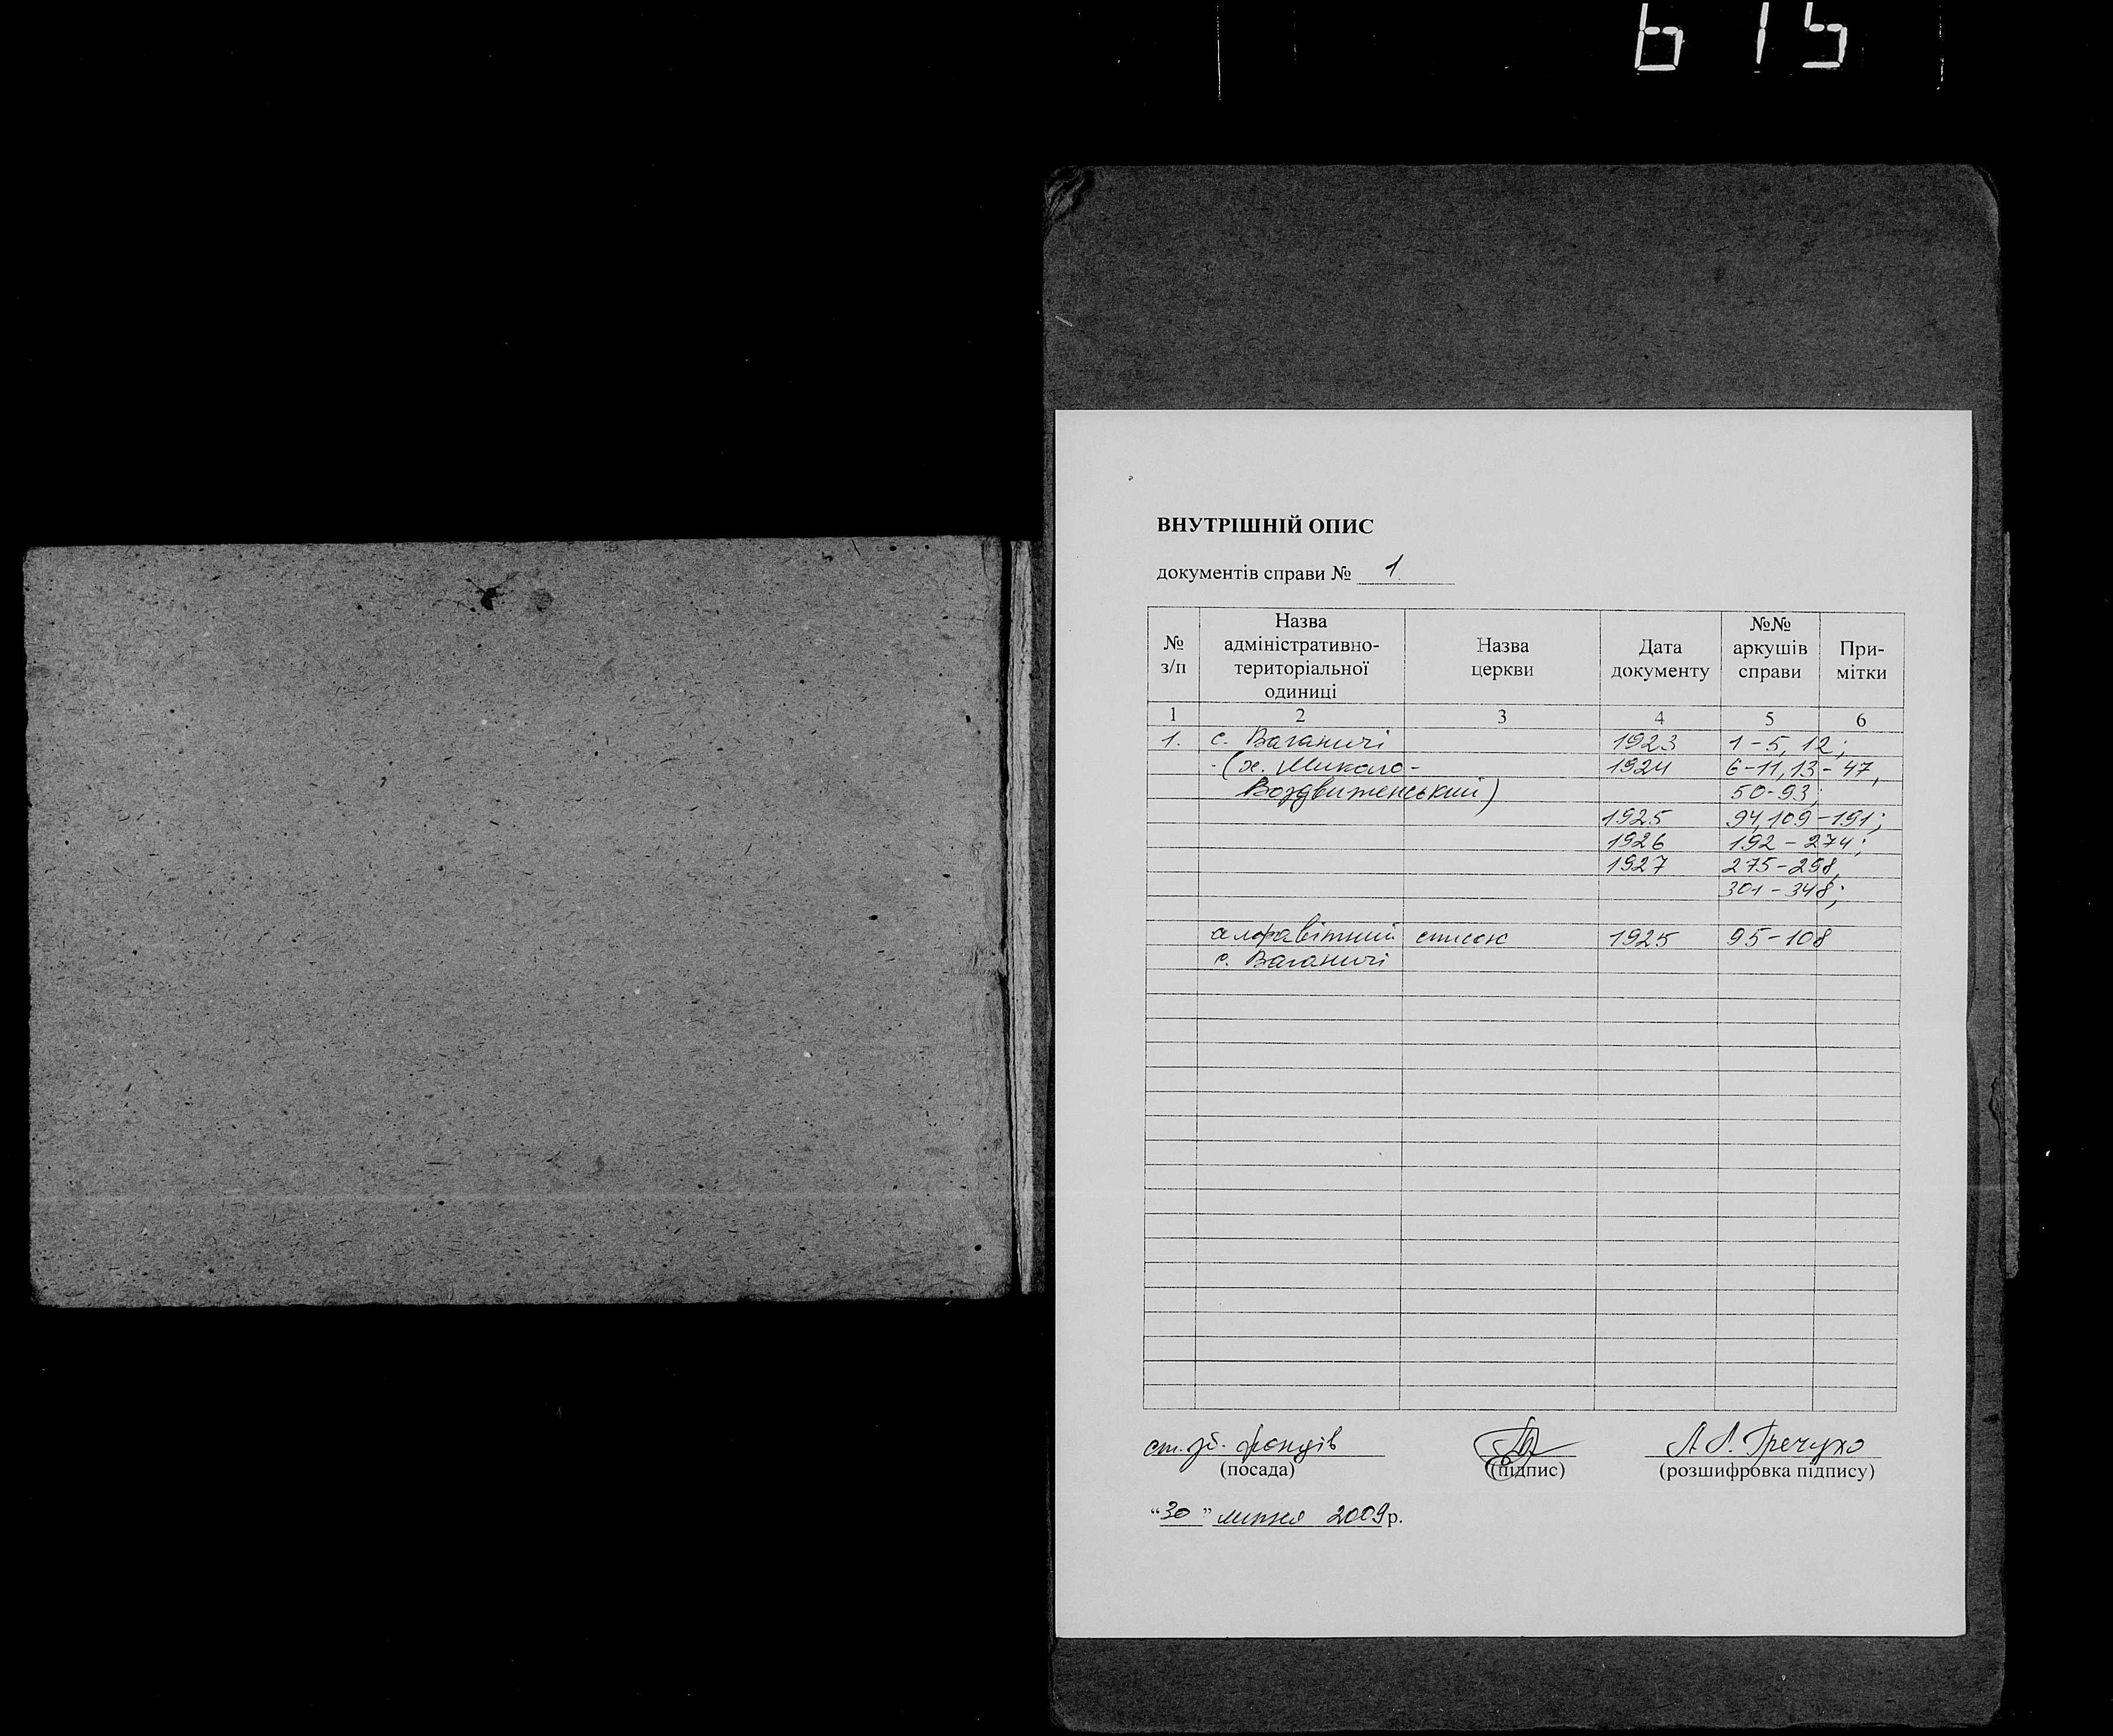 615
ВНУТРІШНІЙ ОПИС
документів справи № 1
№ з/п | Назва адміністративно-територіальної одиниці | Назва церкви | Дата документу | №№ аркушів справи | При-мітки
1 2 3 4 5 6
1. с. Ваганичі 1923 1-5, 12;
(х. Миколо- 1924 6-11, 13-47,
Воздвиженський) 50-93;
1925 94, 109-191;
1926 192-274;
1927 275-298,
301-348;
алфавітний список 1925 95-108
с. Ваганичі
ст. зб. фондів А.А. Гречухо
(посада) (підпис) (розшифровка підпису)
"30" липня 2009р.